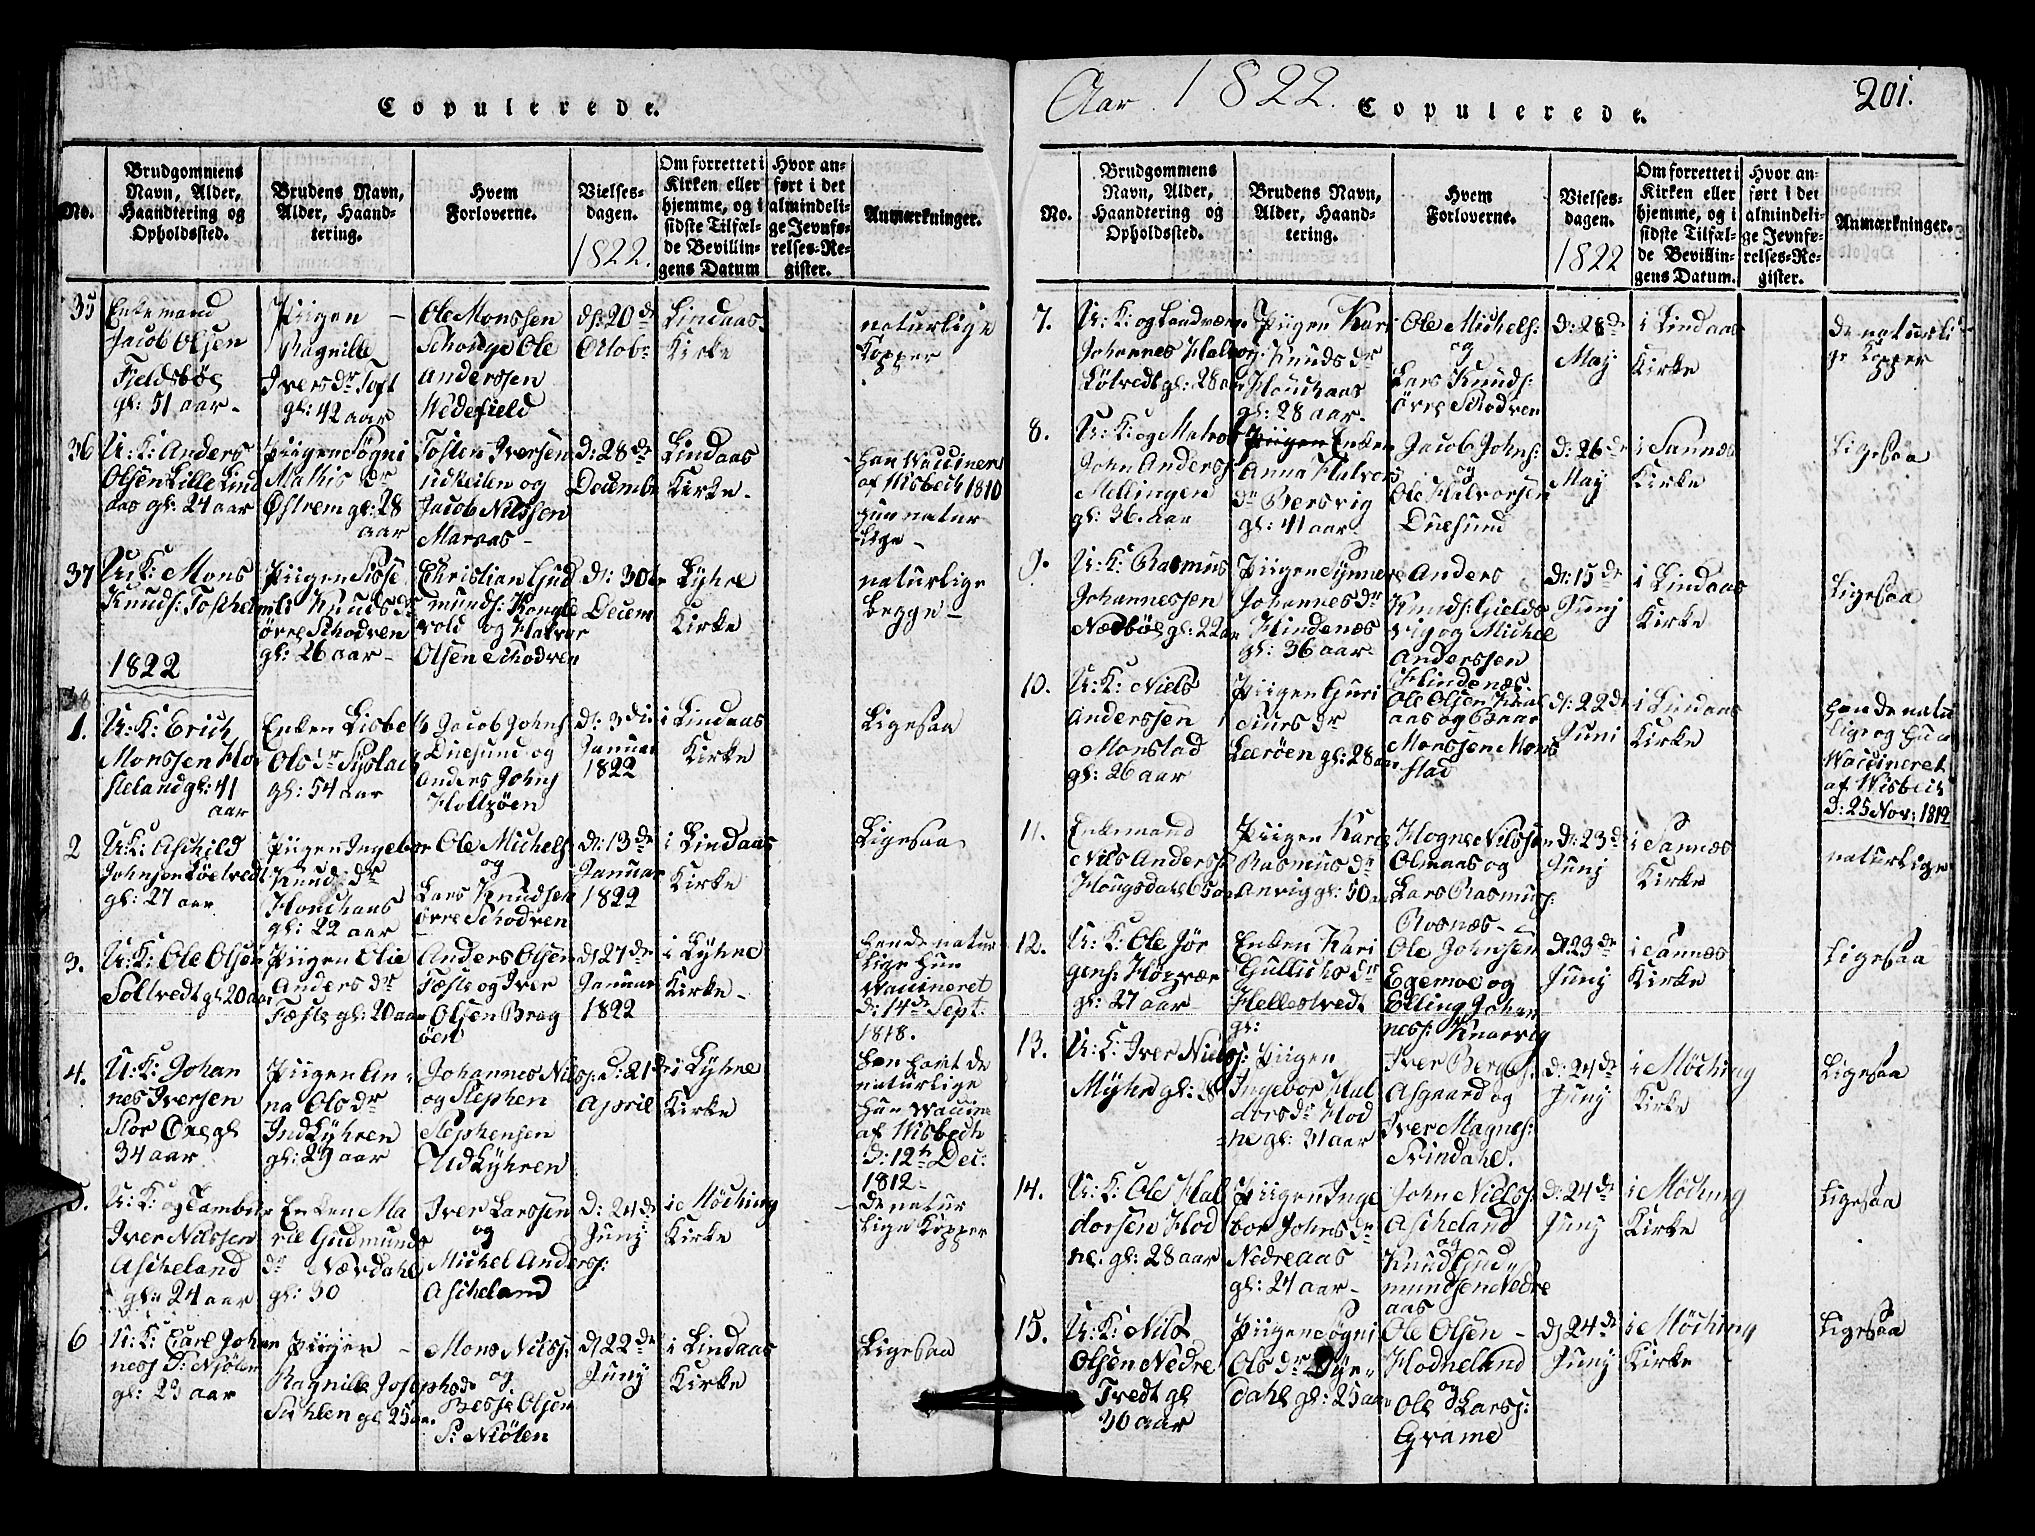 Copulerede.
No.
Brudgommens
Navn, Alder,
Haandtering og
Opholdssted.
Brudens Navn,
Alder, Haand-
tering.
Hvem
Forloverne.
Vielses-
dagen.
1822.
Om forrettet i
Kirken eller
hjemme, og i
sidste Tilfæl-
de Bevillin-
gens Datum
Hvor an-
ført i det
almindeli-
ge Jevnfø-
relses-Re-
gister.
Anmærkninger.
35
Enkemand
Jacob Olsen
Fieldsbøe
gl: 51 aar -
Piigen -
Ragnille
Ivers dr Toft
gl: 42 aar
Ole Monssen
Schouge Ole
Anderssen
Wedefield
d: 20 de
Octobr
Lindaas
Kirke
naturlige
Kopper
36
U: K: Anders
Olsen Lille Lind
aas gl: 24 aar
Piigen Søgni
Mathis dr
Østrem gl: 28
aar
Tosten Iversen
og
Jacob Nilssen
Maraas -
D: 28 de
Decembr
Lindaas
Kirke -
han Waccineret
af Wisbech 1810
hun natur
lige -
37
U: K: Mons
Knuds: Toschem
Piigen Sisse
Knuds dr
øvre Schodven
gl: 26 aar -
Christian Gud
munds: Kongle
vold og Halvor
Olsen Schodven
d: 30 de
Decem
Lyhre
Kirke
naturlige
begge -
1822
1.
U: K: Erich
Monssen Ho
steland gl: 41
aar
Enken Lisbe
Ols dr Syslac
gl: 54 aar
Jacob Johns
Duesund og
Anders Johns
Holtzøen
d: 3 die
Januar
1822
i Lindaas
Kirke
Ligesaa
2
U: K: Aschild
Johnsen Kolvedt
gl: 27 aar
Piigen Ingebor
Knuds dr
Houchaas
gl: 22 aar
Ole Michels:
og
Lars Knudsen
øvre Schodven
d: 13 de
Januar
1822
i Lindaas
Kirke
Ligesaa
3.
U: K: Ole Olsen
Soltvedt gl 20 aar
Piigen Olie
Anders dr
Fæste gl: 20 aar
Anders Olsen
Fæste og Iver
Olsen Brag
øen
d: 27 de
Januar
1822
i Lyhre
Kirke -
hende natur
lige hun
Waccineret
d: 14 de Sept:
1818.
4.
U: K: Johan
nes Iversen
Stor Oxe gl
34 aar
Piigen An -
na Ols dr
Ind Lyhren
gl: 29 aar
Johannes Nils:
og Stephen
Stephensen
Ud Lyhren
D: 21 de
April
i Lyhre
Kirke
han havt de
naturlige
hun Waccine
af Wisbech
d: 12te Dec:
1812 -
5.
U: K: og Tambur
Iver Nilssen
Ascheland
gl: 24 aar
Enken Ma
rie Gudmunds
dr Nævdahl
gl: 30
Iver Larssen
og
Michel Anders:
Ascheland
D: 24 de
Junj
i Möching
Kirke
de natur
lige Kopper
6
U: K: Carl Johan
nes: S: Njølen
gl: 23 aar
Piigen -
Ragnille Josephs dr
gl 25 aar.
Mons Nils:
og
Besse Olsen
S: Niölen
d 22 de
Junj
i Lindaas
Kirke
Ligesaa
Aar 1822. Copulerede.
201.
No.
Brudgommens
Navn, Alder,
Haandtering og
Opholdssted.
Brudens Navn,
Alder, Haand-
tering.
Hvem
Forloverne.
Vielses-
dagen.
1822
Om forrettet i
Kirken eller
hjemme, og i
sidste Tilfæl-
de Bevillin-
gens Datum.
Hvor an-
ført i det
almindeli-
ge Jevnfø-
relses-Re-
gister.
Anmærkninger.
7.
U: K: og Landværn
Johannes Halvor
Kolvedt gl: 28 aar
Piigen Kari
Knuds dr
Houchaas
gl: 28 aar -
Ole Michels:
og
Lars Knuds:
øvre Schodven
D: 28 de
May
i Lindaas
Kirke
de naturli
ge Kopper
8.
U: K: og Matros
John Anders
Mellingen
gl: 36 aar
Piigen Enken
Anna Halvors
dr Bersvig
gl: 41 aar
Jacob Johns:
og
Ole Halvorsen
Duesund
D: 26 de
May
i Sannæs
Kirke
Ligesaa
9.
U: K: Rasmus
Johannessen
Nedbøe gl: 22 aar
Piigen Synnere
Johannes dr
Hindenæs
gl: 36 aar
Anders
Knuds: Gields
vig og Michel
Anderssen
Hindenæs
D: 15 de
Junj
i Lindaas
Kirke
Ligesaa
10.
U: K: Niels
Anderssen
Monstad
gl: 26 aar
Piigen Guri
Siurs dr
Leerøen gl: 28 aar
Ole Olsen Kaa
aas og Brar
Monssen Mons
stad
d: 22 de
Juni
i Lindaas
Kirke
han de natu
lige og hun
Waccineret
af Wisbech
d: 25 Nov: 1812
11.
Enkemand
Nils Anders:
Hougsdal 65 aar
Piigen Kari
Rasmus dr
Anvig gl: 50 aar
Hogne Nilssen
Olmaas og
Lars Rasmus:
Rosnæs -
D: 23 de
Junj
i Sannæs
Kirke
naturlige
12.
U: K: Ole Jør
gens: Hopvær
gl: 27 aar
Enken Kari
Gullichs dr
Hellestvedt
gl:
Ole Johnsen
Egemoe og
Elling Johan
nes: Knarvig
d 23 de
Junj
i Sannæs
Kirke
Ligesaa
13.
U: K: Iver Niels:
Myhr gl: 28
Piigen
Ingebor Hal
dors dr Hod
ne gl: 31 aar
Iver Berges:
Asgaard og
Iver Magnes:
Svindahl.
d: 24 de
Junj
i Möching
Kirke
Ligesaa
14.
U: K: Ole Hal
dorsen Hod
ne. gl: 28 aar
Piigen Inge
bor Johns dr
Nedreaas
gl: 24 aar -
John Niels:
Ascheland
og
Knud Gud
mundsen Nedre
aas
d: 24 de
Junj
i Möching
Kirke
Ligesaa
15.
U: K: Nils
Olsen Nedre
Tvedt gl
30 aar
Piigen Søgni
Ols dr Dye
dahl gl: 25 aar
Ole Olsen -
Hodneland
og
Ole Lars:
Gvame
d 24 de
Junj
i Möching
Kirke
Ligesaa